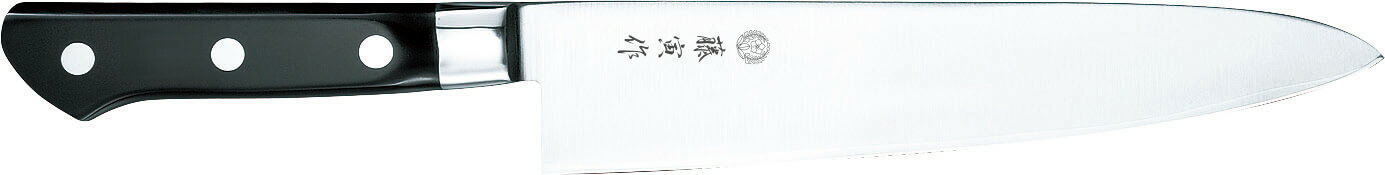 藤寅作